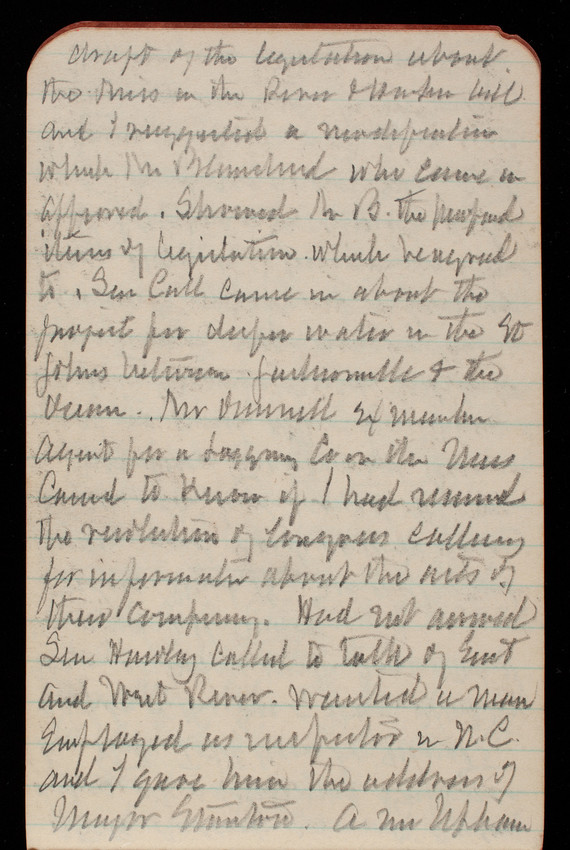 draft of the legislation about
the Miss in the River & Harbor bill
and I suggested a modification
which Mr Blanchard who came in
approved. Showed Mr B. the proposed
items of legislation which he agreed
to. Sen Call came in about the
project for deeper water in the St
Johns between Jacksonville & the
Ocean. Mr Dunnell Ex member
Agent for a Logging Co on the Miss
Came to know if I had received
the resolution of Congress Calling
for information about the acts of
their Company. Had not arrived
Sen Hawley Called to talk of East
and West River. Wanted a man
Employed as inspector in N.C.
and I gave him the address of
Major Stanton. A Mr Upham